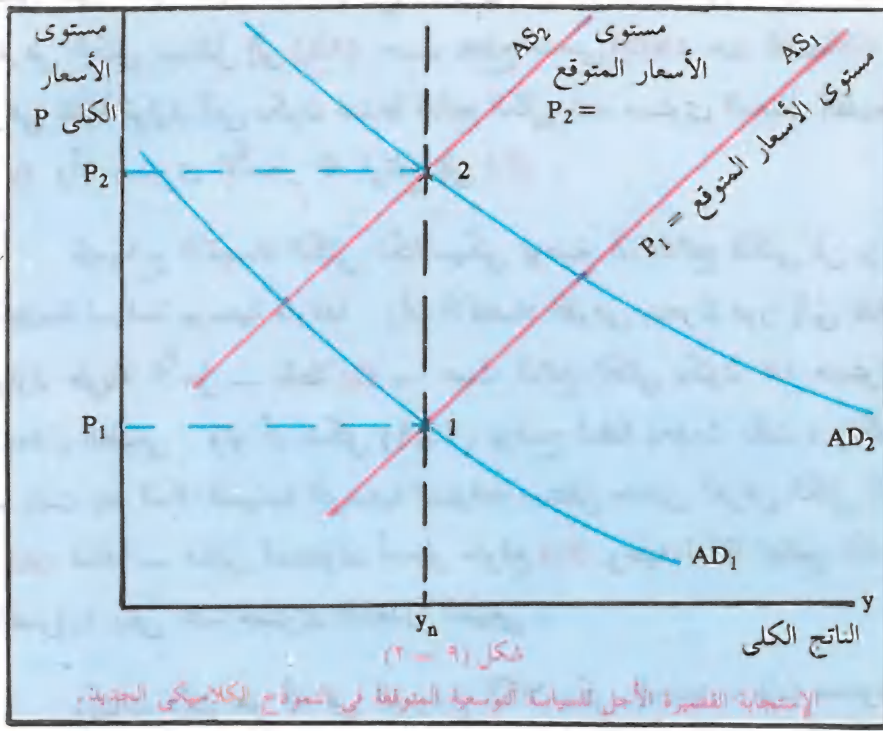 مستوى
الأسعار
الكلى P
AS₂
مستوى
الأسعار المتوقع
P₂ =
AS₁
مستوى الأسعار المتوقع = P₁
P₂
2
P₁
1
AD₂
AD₁
y
yₙ
الناتج الكلى
شكل (٩ – ٢)
الإستجابة القصيرة الأجل للسياسة التوسعية المتوقعة فى النموذج الكلاسيكى الجديد.